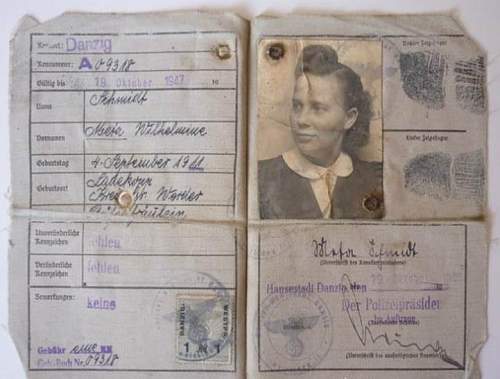 Kennort: Danzig
Kennummer: A 09318
Gültig bis 19. Oktober 1947
Name Schmidt
Vornamen Meta Wilhelmine
Geburtstag 4. September 1911
Geburtsort Ladekopp
Kreis Gr. Werder
Unveränderliche
Kennzeichen fehlen
Veränderliche
Kennzeichen fehlen
Bemerkungen: keine
Gebühr eine RM
Geb. Buch Nr. 09318
DANZIG-
WESTPR.
1 1
Rechter Zeigefinger
Linker Zeigefinger
Meta Schmidt
(Unterschrift des Kennkarteninhabers)
Hansestadt Danzig den
Der Polizeipräsident
Im Auftrage
(Unterschrift des ausfertigenden Beamten)